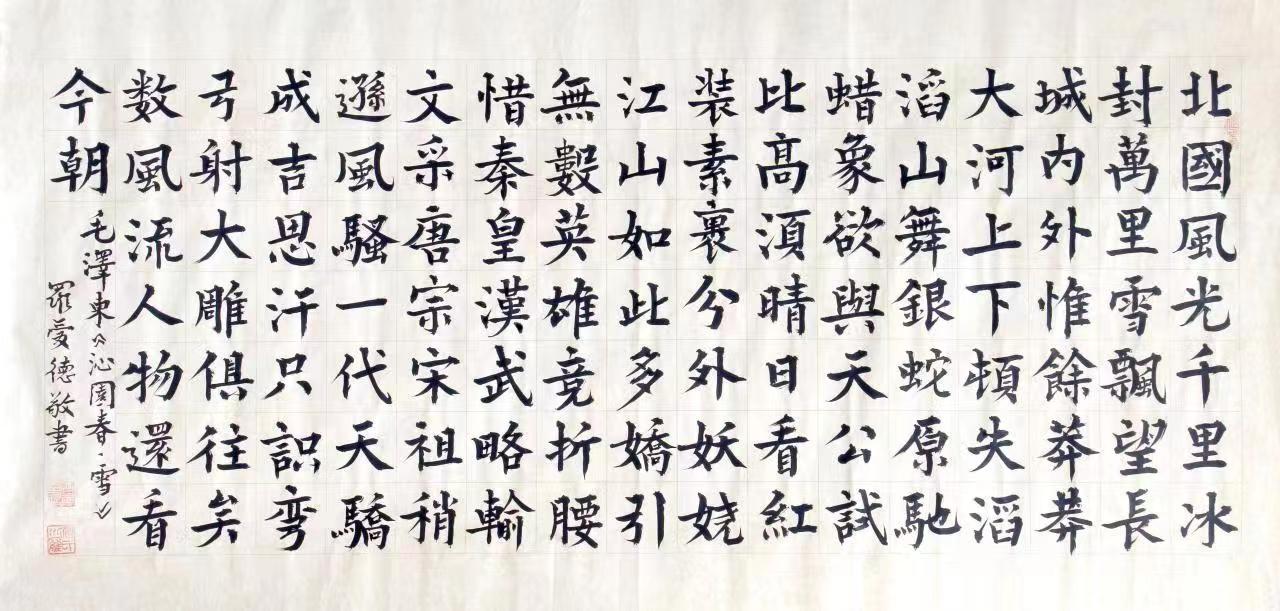 北國風光千里冰
封萬里雪飄望長
城内外惟餘莽莽
大河上下頓失滔
滔山舞銀蛇原馳
蜡象欲與天公試
比髙湏晴日看紅
装素裹分外妖娆
江山如此多嬌引
無數英雄竞折腰
惜秦皇漢武略輸
文采唐宗宋祖稍
遜風騷一代天驕
成吉思汗只識弯
弓射大雕俱往矣
数風流人物還看
今朝
毛澤東《沁園春·雪》
羅愛德敬書